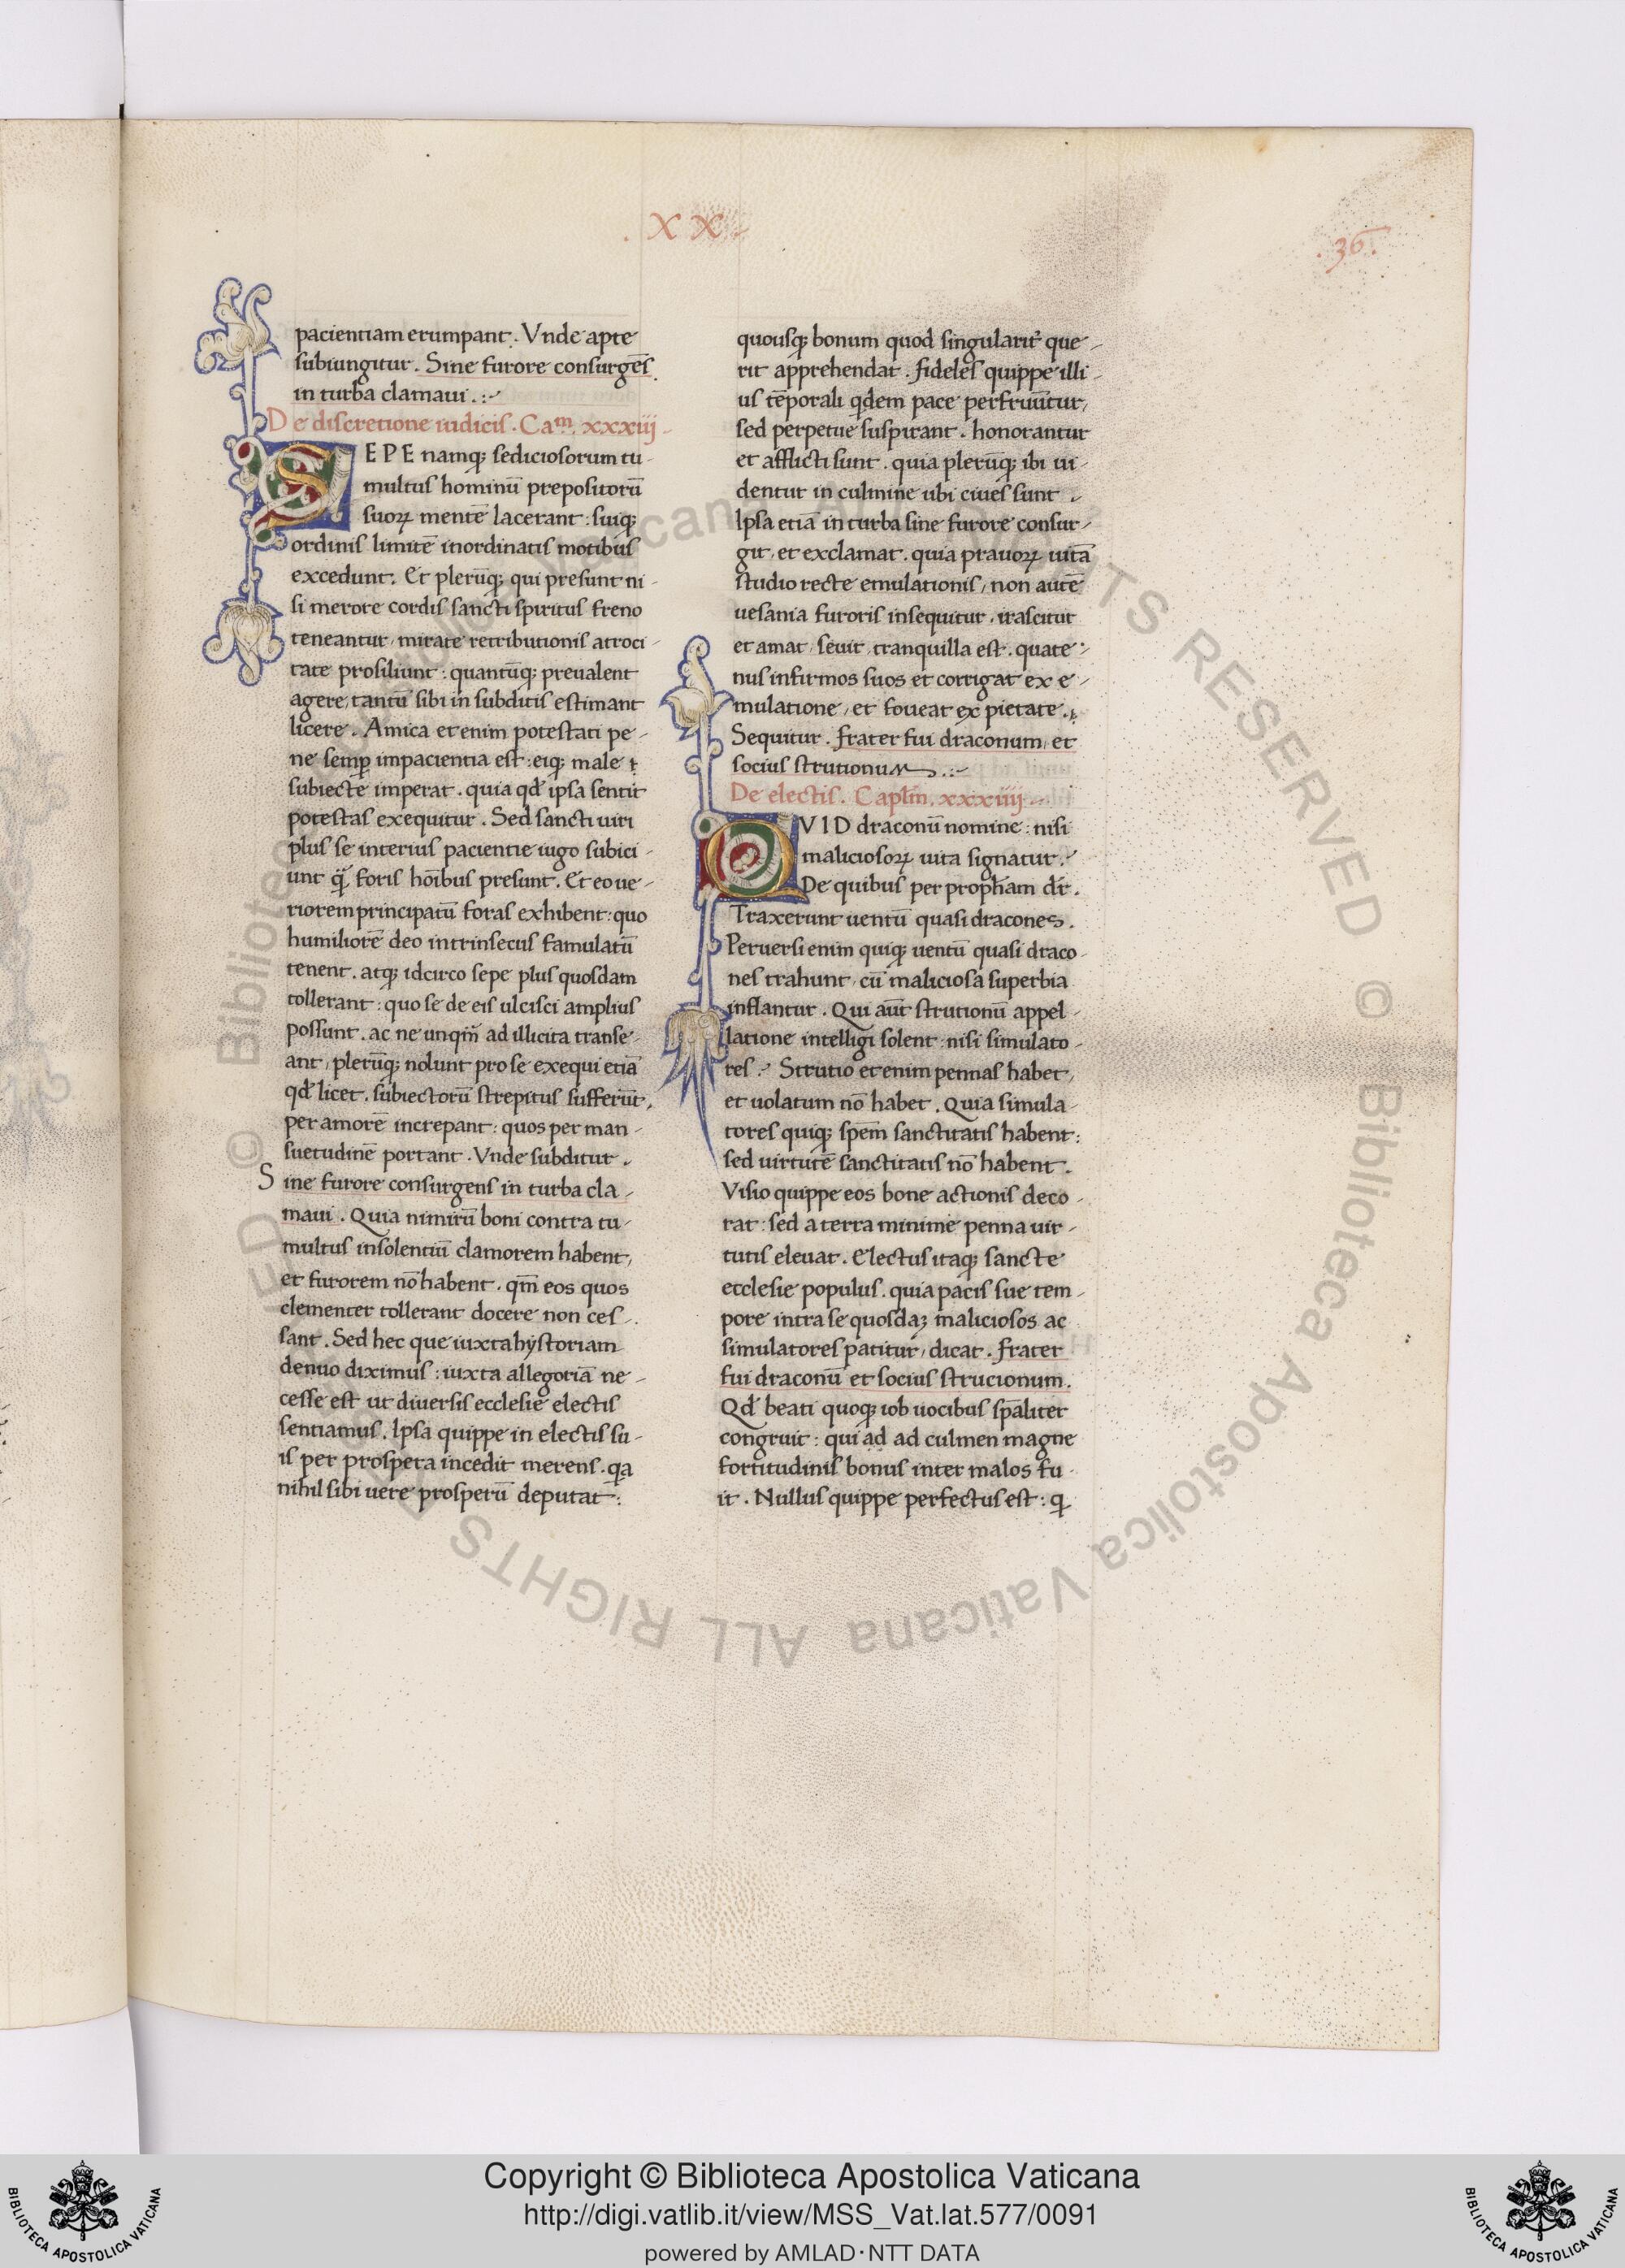 . X X .
. 36 .
pacientiam erumpant. Vnde apte
subiungitur. Sine furore consurgēs
in turba clamaui .:~
De discretione iudicis. Caᵐ. xxxiij
SEPE namqꝫ sediciosorum tu-
multus hominū prepositorū
suoꝝ mentē lacerant: suiqꝫ
ordinis limitē inordinatis motibus
excedunt. Et plerūqꝫ qui presunt ni-
si merore cordis sancti spiritus freno
teneantur, mirate retributionis atroci-
tate prosiliunt: quantūqꝫ preualent
agere, tantū sibi in subditis estimant
licere. Amica etenim potestati pe-
ne semꝑ impacientia est: eiqꝫ male
subiecte imperat. quia qd̄ ipsa sentit
potestas exequitur. Sed sancti uiri
plus se interius pacientie iugo subici-
unt q̄ foris hoībus presunt. Et eo ue-
riorem principatū foras exhibent: quo
humiliorē deo intrinsecus famulatū
tenent. atqꝫ idcirco sepe plus quosdam
tollerant: quo se de eis ulcisci amplius
possunt. ac ne unqm̄ ad illicita transe-
ant, plerūqꝫ nolunt pro se exequi etiā
qd̄ licet. subiectorū strepitus sufferūt,
per amorē increpant: quos per man-
suetudinē portant. Vnde subditur.
Sine furore consurgens in turba cla-
maui. Quia nimirū boni contra tu-
multus insolentiū clamorem habent,
et furorem nō habent. qm̄ eos quos
clementer tollerant docere non ces-
sant. Sed hec que iuxta hystoriam
denuo diximus: iuxta allegoriā ne-
cesse est ut diuersis ecclesie electis
sentiamus. Ipsa quippe in electis su-
is per prospera incedit merens. qa
nihil sibi uere prosperū deputat:
quousqꝫ bonum quod singularit̄ que-
rit apprehendat. fideles quippe illi-
us tēporali qdem pace perfruūtur,
sed perpetue suspirant. honorantur
et afflicti sunt. quia plerūqꝫ ibi ui-
dentur in culmine ubi ciues sunt.
Ipsa etiā in turba sine furore consur-
git, et exclamat. quia prauoꝝ uitā
studio recte emulationis, non autē
uesania furoris insequitur. irascitur
et amat, seuit, tranquilla est. quate-
nus infirmos suos et corrigat ex e-
mulatione, et foueat ex pietate.
Sequitur. frater fui draconum, et
socius strutionum .:~
De electis. Capl̄m. xxxiiij
QVID draconū nomine: nisi
maliciosoꝝ uita signatur.
De quibus per propħam dr̄.
Traxerunt uentū quasi dracones.
Peruersi enim quiqꝫ uentū quasi draco-
nes trahunt, cū maliciosa superbia
inflantur. Qui aūt strutionū appel-
latione intelligi solent: nisi simulato-
res. Strutio etenim pennas habet,
et uolatum nō habet. Quia simula-
tores quiqꝫ spēm sanctitatis habent:
sed uirtutē sanctitatis nō habent.
Visio quippe eos bone actionis deco-
rat: sed a terra minime penna uir-
tutis eleuat. Electus itaqꝫ sancte
ecclesie populus. quia pacis sue tem-
pore intra se quosdaꝫ maliciosos ac
simulatores patitur, dicat. frater
fui draconū et socius strucionum.
Qd̄ beati quoqꝫ iob uocibus sp̄aliter
congruit: qui ad ad culmen magne
fortitudinis bonus inter malos fu-
it. Nullus quippe perfectus est: q
Copyright © Biblioteca Apostolica Vaticana
http://digi.vatlib.it/view/MSS_Vat.lat.577/0091
powered by AMLAD·NTT DATA
BIBLIOTECA APOSTOLICA VATICANA
BIBLIOTECA APOSTOLICA VATICANA